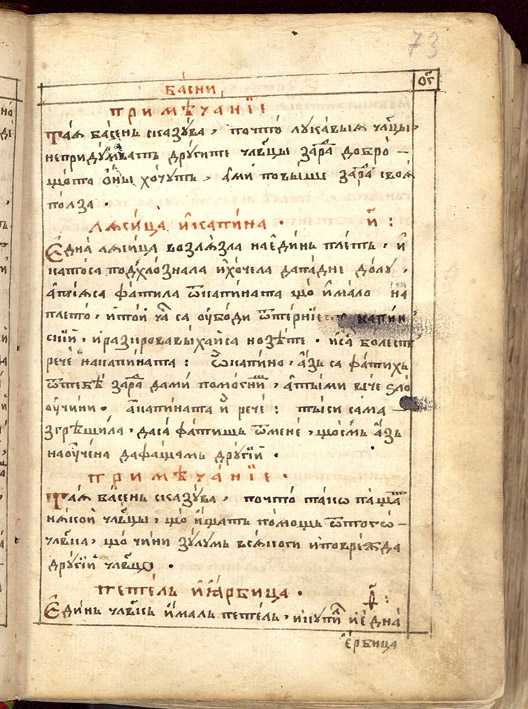 73
ба́сни
ог҃
примѣчанїе
Таѧ ба́сень сказꙋва, почто лꙋкавыѧ чл҃вцы,
непридꙋмватъ дрꙋгите чл҃вцы зара̀ добро
щото ѻ́ны хо́чꙋтъ, ами повыше зара̀ своѧ
полза.
лѧсица, и҆капина. и҃:
Е҆дна̀ лѧсица возлѧзла наеди́нь плетъ, и҆
катоса подхлознала ихочела дападне до́лꙋ,
апоѧса фатила ѿкапината що и҆мало на
плето, и҆той час са оубоди ѿтерніе капин
скїй, и҆разировавыхайса нозѣте. и҆са болестъ
рече накапината: ѽкапино, а҆зъ са фатихъ
ѿтебѣ зара̀ дами помогни, а҆тыми вече ѕло
оучини. а҆капината и҆ рече: тыси сама
згрѣшила, даса фатишъ ѿмене, щосѣмъ а҆зъ
наоучена дафащамъ дрꙋгїй.
примѣчанїе.
Таѧ ба́сень сказꙋва, почто тако па́щат
нѧкой чл҃вцы, що и҆щатъ помощь ѿтогѡ
чл҃вка, що чини зꙋлꙋмъ всѧкоги иповрѣжда
дрꙋгїй чл҃вцы.
петель и҆ ѧрбица. ѳ҃:
Е҆динь чл҃вкъ и҆малъ петель, икꙋпил и е҆дна̀
е҆рбица